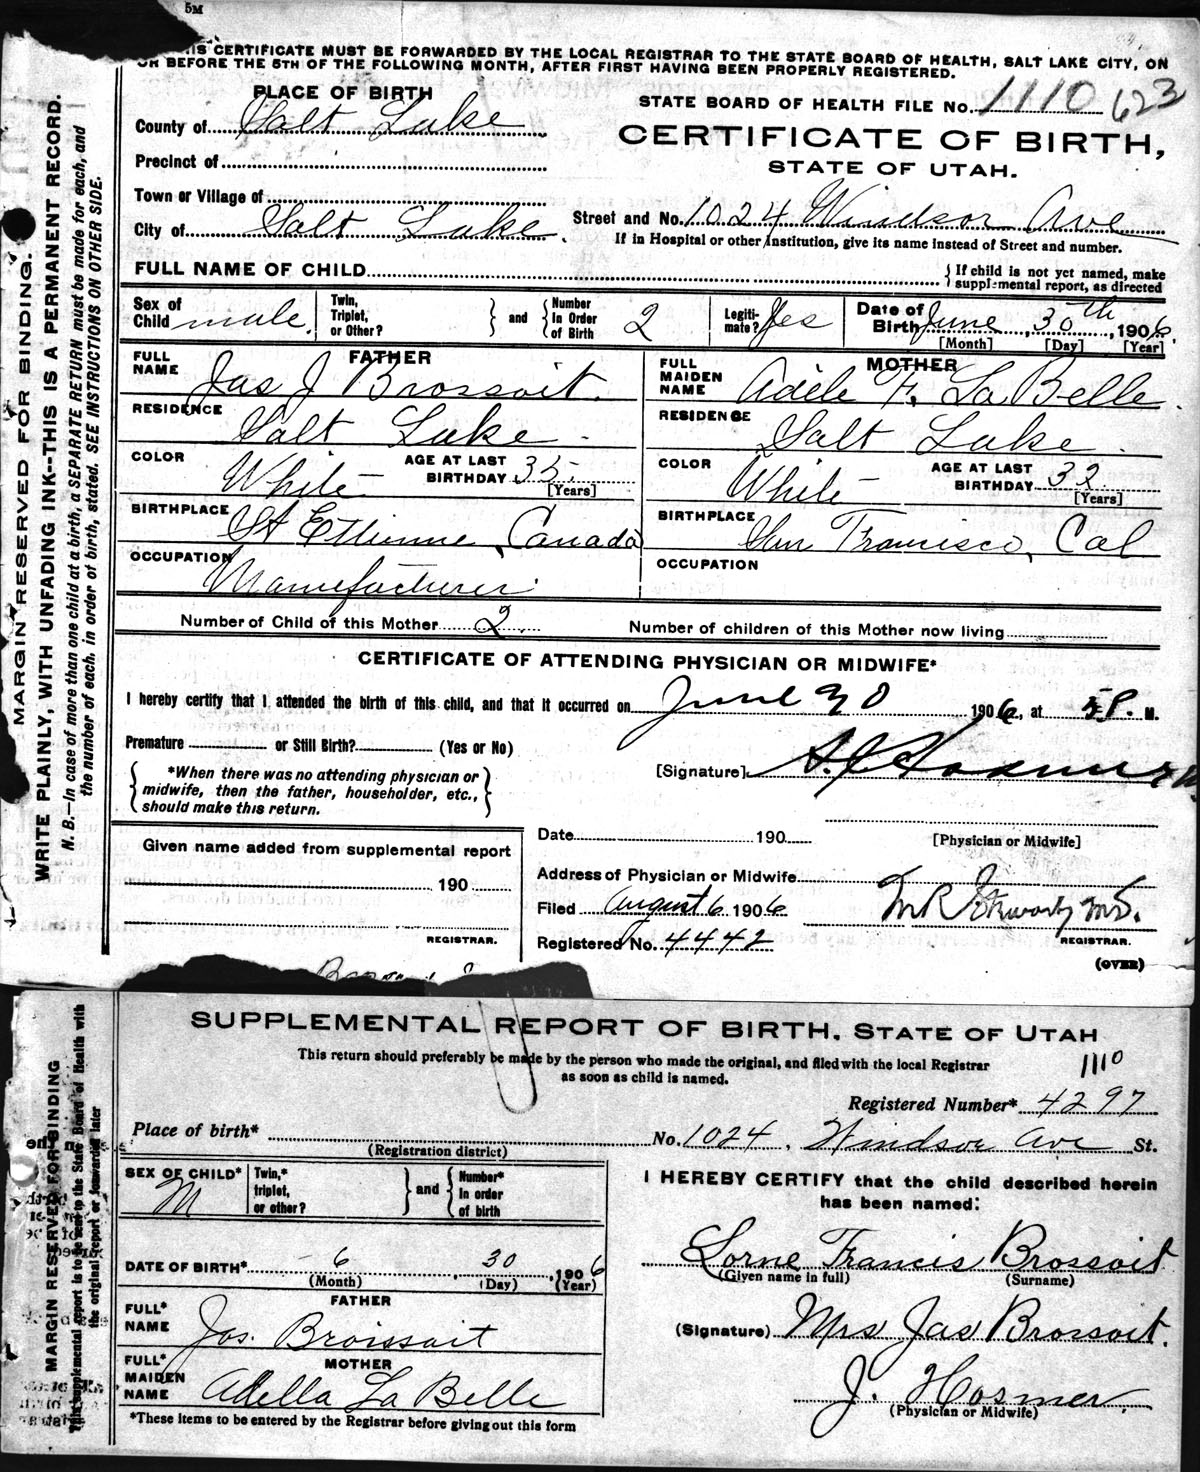 5M
THIS CERTIFICATE MUST BE FORWARDED BY THE LOCAL REGISTRAR TO THE STATE BOARD OF HEALTH, SALT LAKE CITY, ON
OR BEFORE THE 5TH OF THE FOLLOWING MONTH, AFTER FIRST HAVING BEEN PROPERLY REGISTERED.
MARGIN RESERVED FOR BINDING.
WRITE PLAINLY, WITH UNFADING INK--THIS IS A PERMANENT RECORD.
N. B.—In case of more than one child at a birth, a SEPARATE RETURN must be made for each, and
the number of each, in order of birth, stated. SEE INSTRUCTIONS ON OTHER SIDE.
PLACE OF BIRTH
County of Salt Lake
Precinct of
Town or Village of
City of Salt Lake.
STATE BOARD OF HEALTH FILE No. 1110 623
CERTIFICATE OF BIRTH,
STATE OF UTAH.
Street and No. 1024 Windsor Ave
If in Hospital or other Institution, give its name instead of Street and number.
FULL NAME OF CHILD
If child is not yet named, make
supplemental report, as directed
Sex of Child male.
Twin, Triplet, or Other?
and
Number in Order of Birth 2
Legitimate? Yes
Date of Birth June 30th, 1906
[Month] [Day] [Year]
FATHER
FULL NAME Jas J Brossoit.
RESIDENCE Salt Lake.
COLOR White
AGE AT LAST BIRTHDAY 35
[Years]
BIRTHPLACE St Etiienne, Canada
OCCUPATION Manufacturer.
MOTHER
FULL MAIDEN NAME Adele F. La Belle.
RESIDENCE Salt Lake.
COLOR White
AGE AT LAST BIRTHDAY 32
[Years]
BIRTHPLACE San Francisco, Cal
OCCUPATION
Number of Child of this Mother 2.
Number of children of this Mother now living
CERTIFICATE OF ATTENDING PHYSICIAN OR MIDWIFE*
I hereby certify that I attended the birth of this child, and that it occurred on June 30 1906, at 5 P. M.
Premature or Still Birth? (Yes or No)
*When there was no attending physician or
midwife, then the father, householder, etc.,
should make this return.
[Signature]
[Physician or Midwife]
Given name added from supplemental report
190
REGISTRAR.
Date 190
Address of Physician or Midwife
Filed August 6 1906
Registered No. 4442
REGISTRAR.
(OVER)
SUPPLEMENTAL REPORT OF BIRTH, STATE OF UTAH
This return should preferably be made by the person who made the original, and filed with the local Registrar
as soon as child is named.
1110
MARGIN RESERVED FOR BINDING
This supplemental report is to be sent to the State Board of Health with
the original report or forwarded later
Registered Number* 4297
Place of birth* No. 1024, Windsor Ave St.
(Registration district)
SEX OF CHILD* M
Twin,* triplet, or other?
and
Number* in order of birth
DATE OF BIRTH* 6 30, 1906
(Month) (Day) (Year)
FATHER
FULL* NAME Jas. Broissoit
MOTHER
FULL* MAIDEN NAME Adella La Belle
*These items to be entered by the Registrar before giving out this form
I HEREBY CERTIFY that the child described herein
has been named:
Lorne Francis Brossoit
(Given name in full) (Surname)
(Signature) Mrs Jas Brossoit.
J. Hosmer,
(Physician or Midwife)